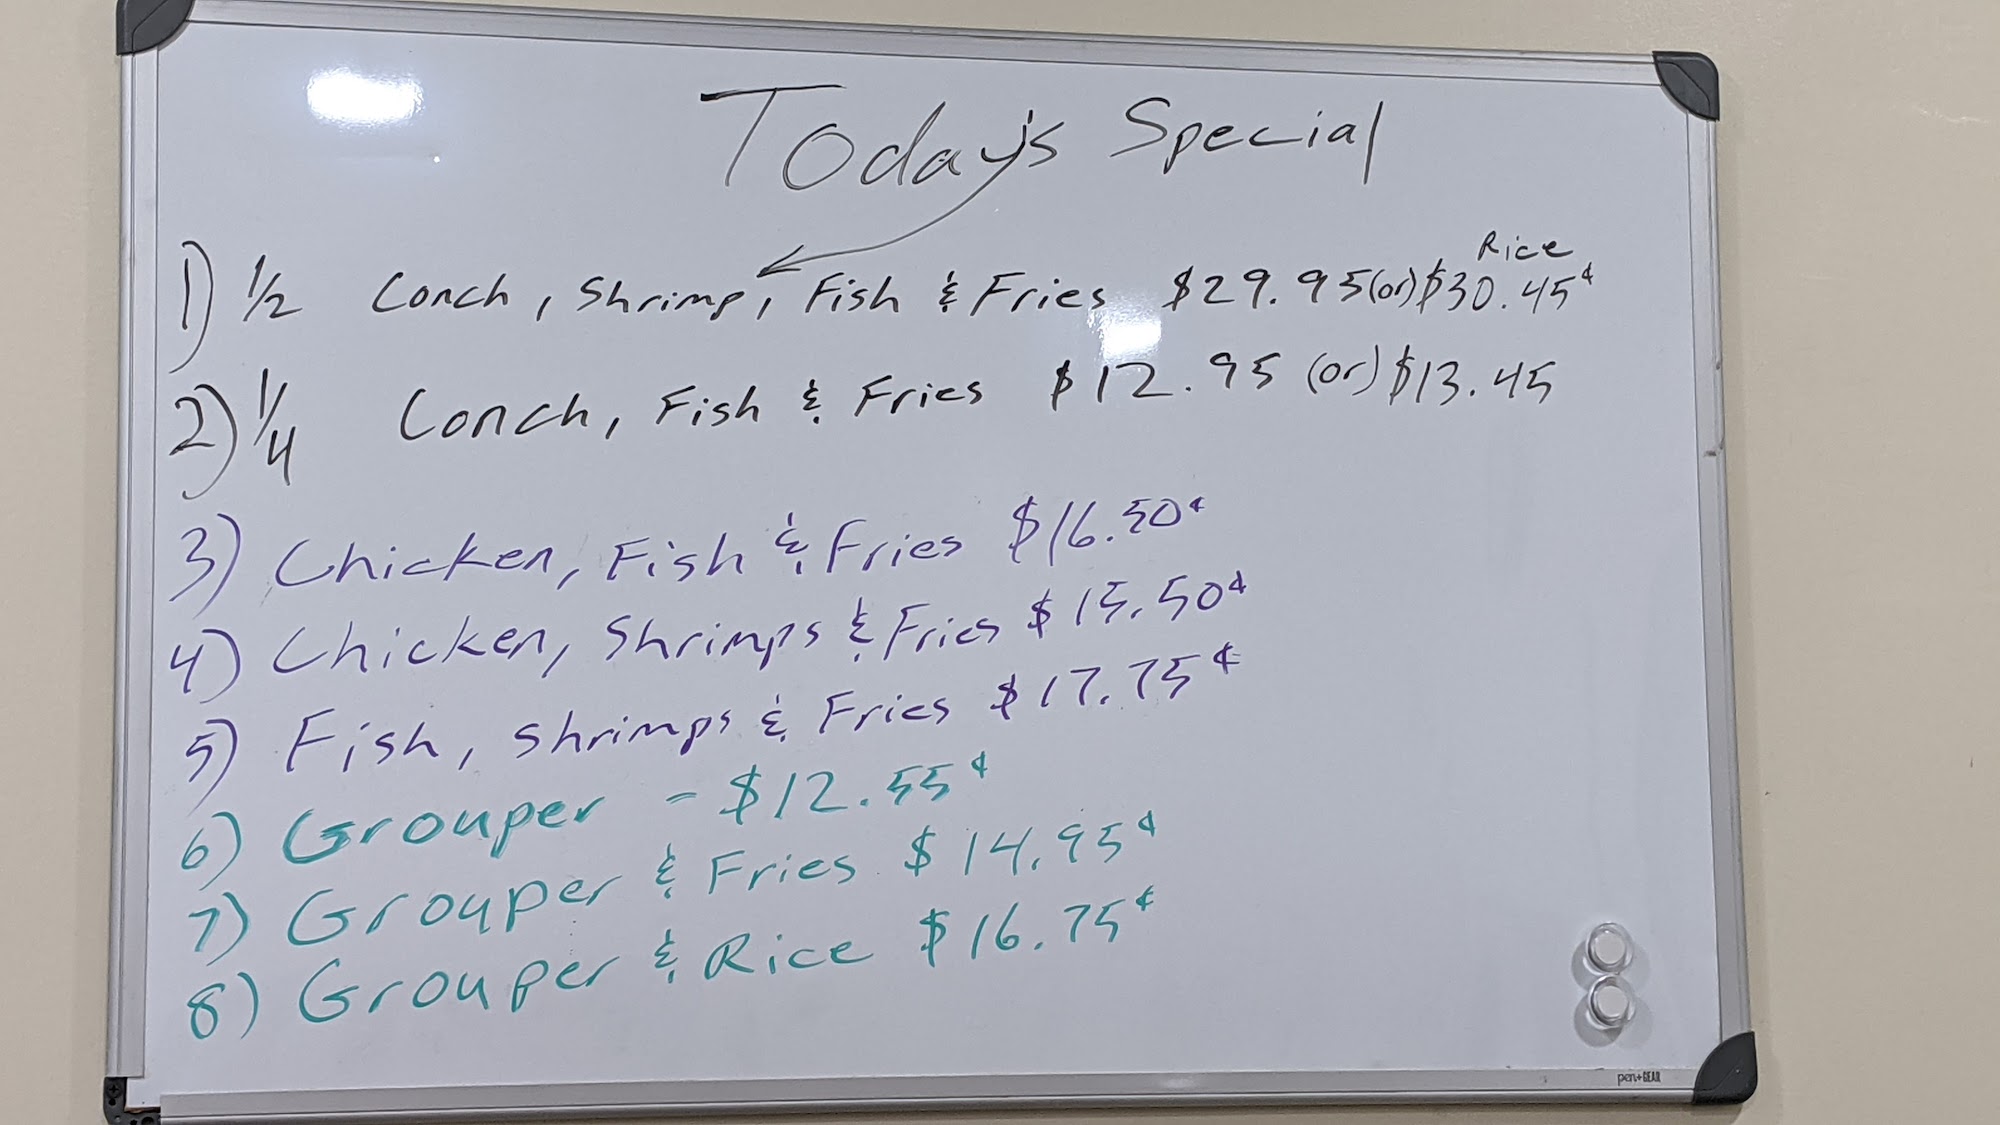 Today's Special
Rice
1) 1/2 Conch, Shrimp, Fish & Fries $29.95 (or) $30.45¢
2) 1/4 Conch, Fish & Fries $12.95 (or) $13.45
3) Chicken, Fish & Fries $16.50¢
4) Chicken, Shrimps & Fries $15.50¢
5) Fish, Shrimps & Fries $17.75¢
6) Grouper - $12.55¢
7) Grouper & Fries $14.95¢
8) Grouper & Rice $16.75¢
pen+GEAR